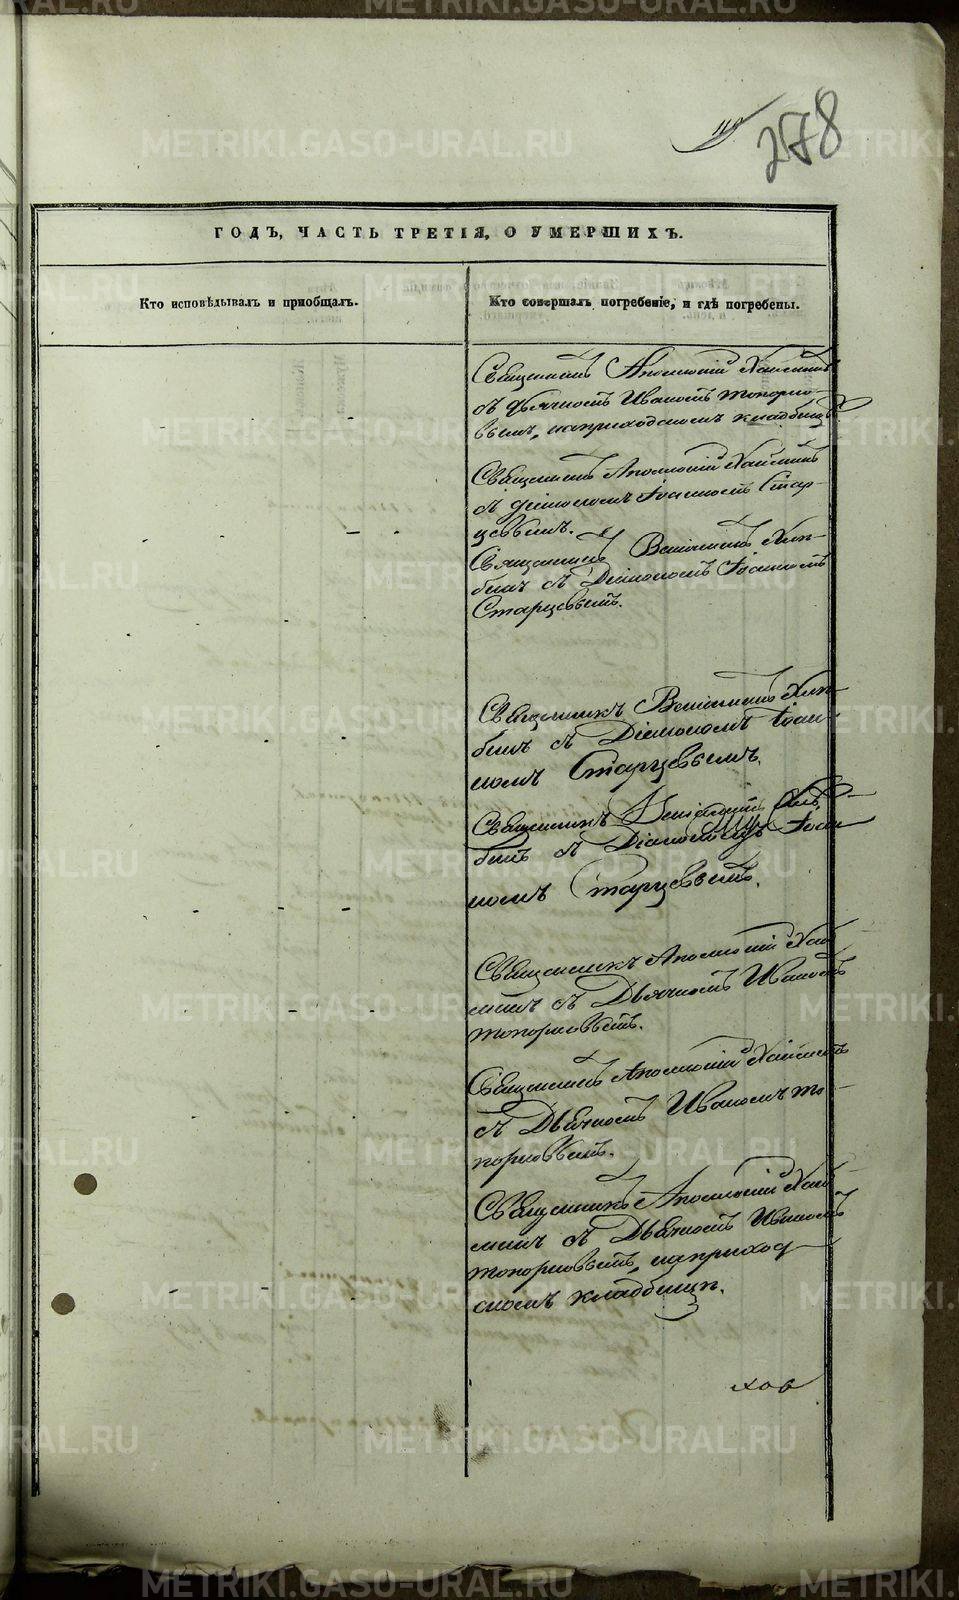 278
ГОДЪ, ЧАСТЬ ТРЕТІЯ, О УМЕРШИХЪ.
Кто исповѣдывалъ и пріобщалъ.
Кто совершалъ погребеніе, и гдѣ погребены.
Священникъ Аполлоній
съ дьячкомъ Иваномъ Топорко-
вымъ, на приходскомъ кладбищѣ
Священникъ Аполлоній
съ діакономъ Іоанномъ Стар-
цовымъ.
Священникъ Веніаминъ Хлы-
бинъ съ Діакономъ Іоанномъ
Старцовымъ.
Священникъ Веніаминъ Хлы-
бинъ съ Діакономъ Іоан-
номъ Старцовымъ.
Священникъ
бинъ съ Діакономъ Іоан-
номъ Старцовымъ.
Священникъ Аполлоній
съ Дьячкомъ Иваномъ
Топорковымъ.
Священникъ Аполлоній
съ Дьячкомъ Иваномъ То-
порковымъ.
Священникъ Аполлоній
съ Дьячкомъ Иваномъ
Топорковымъ, на приход-
скомъ кладбищѣ.
METRIKI.GASO-URAL.RU